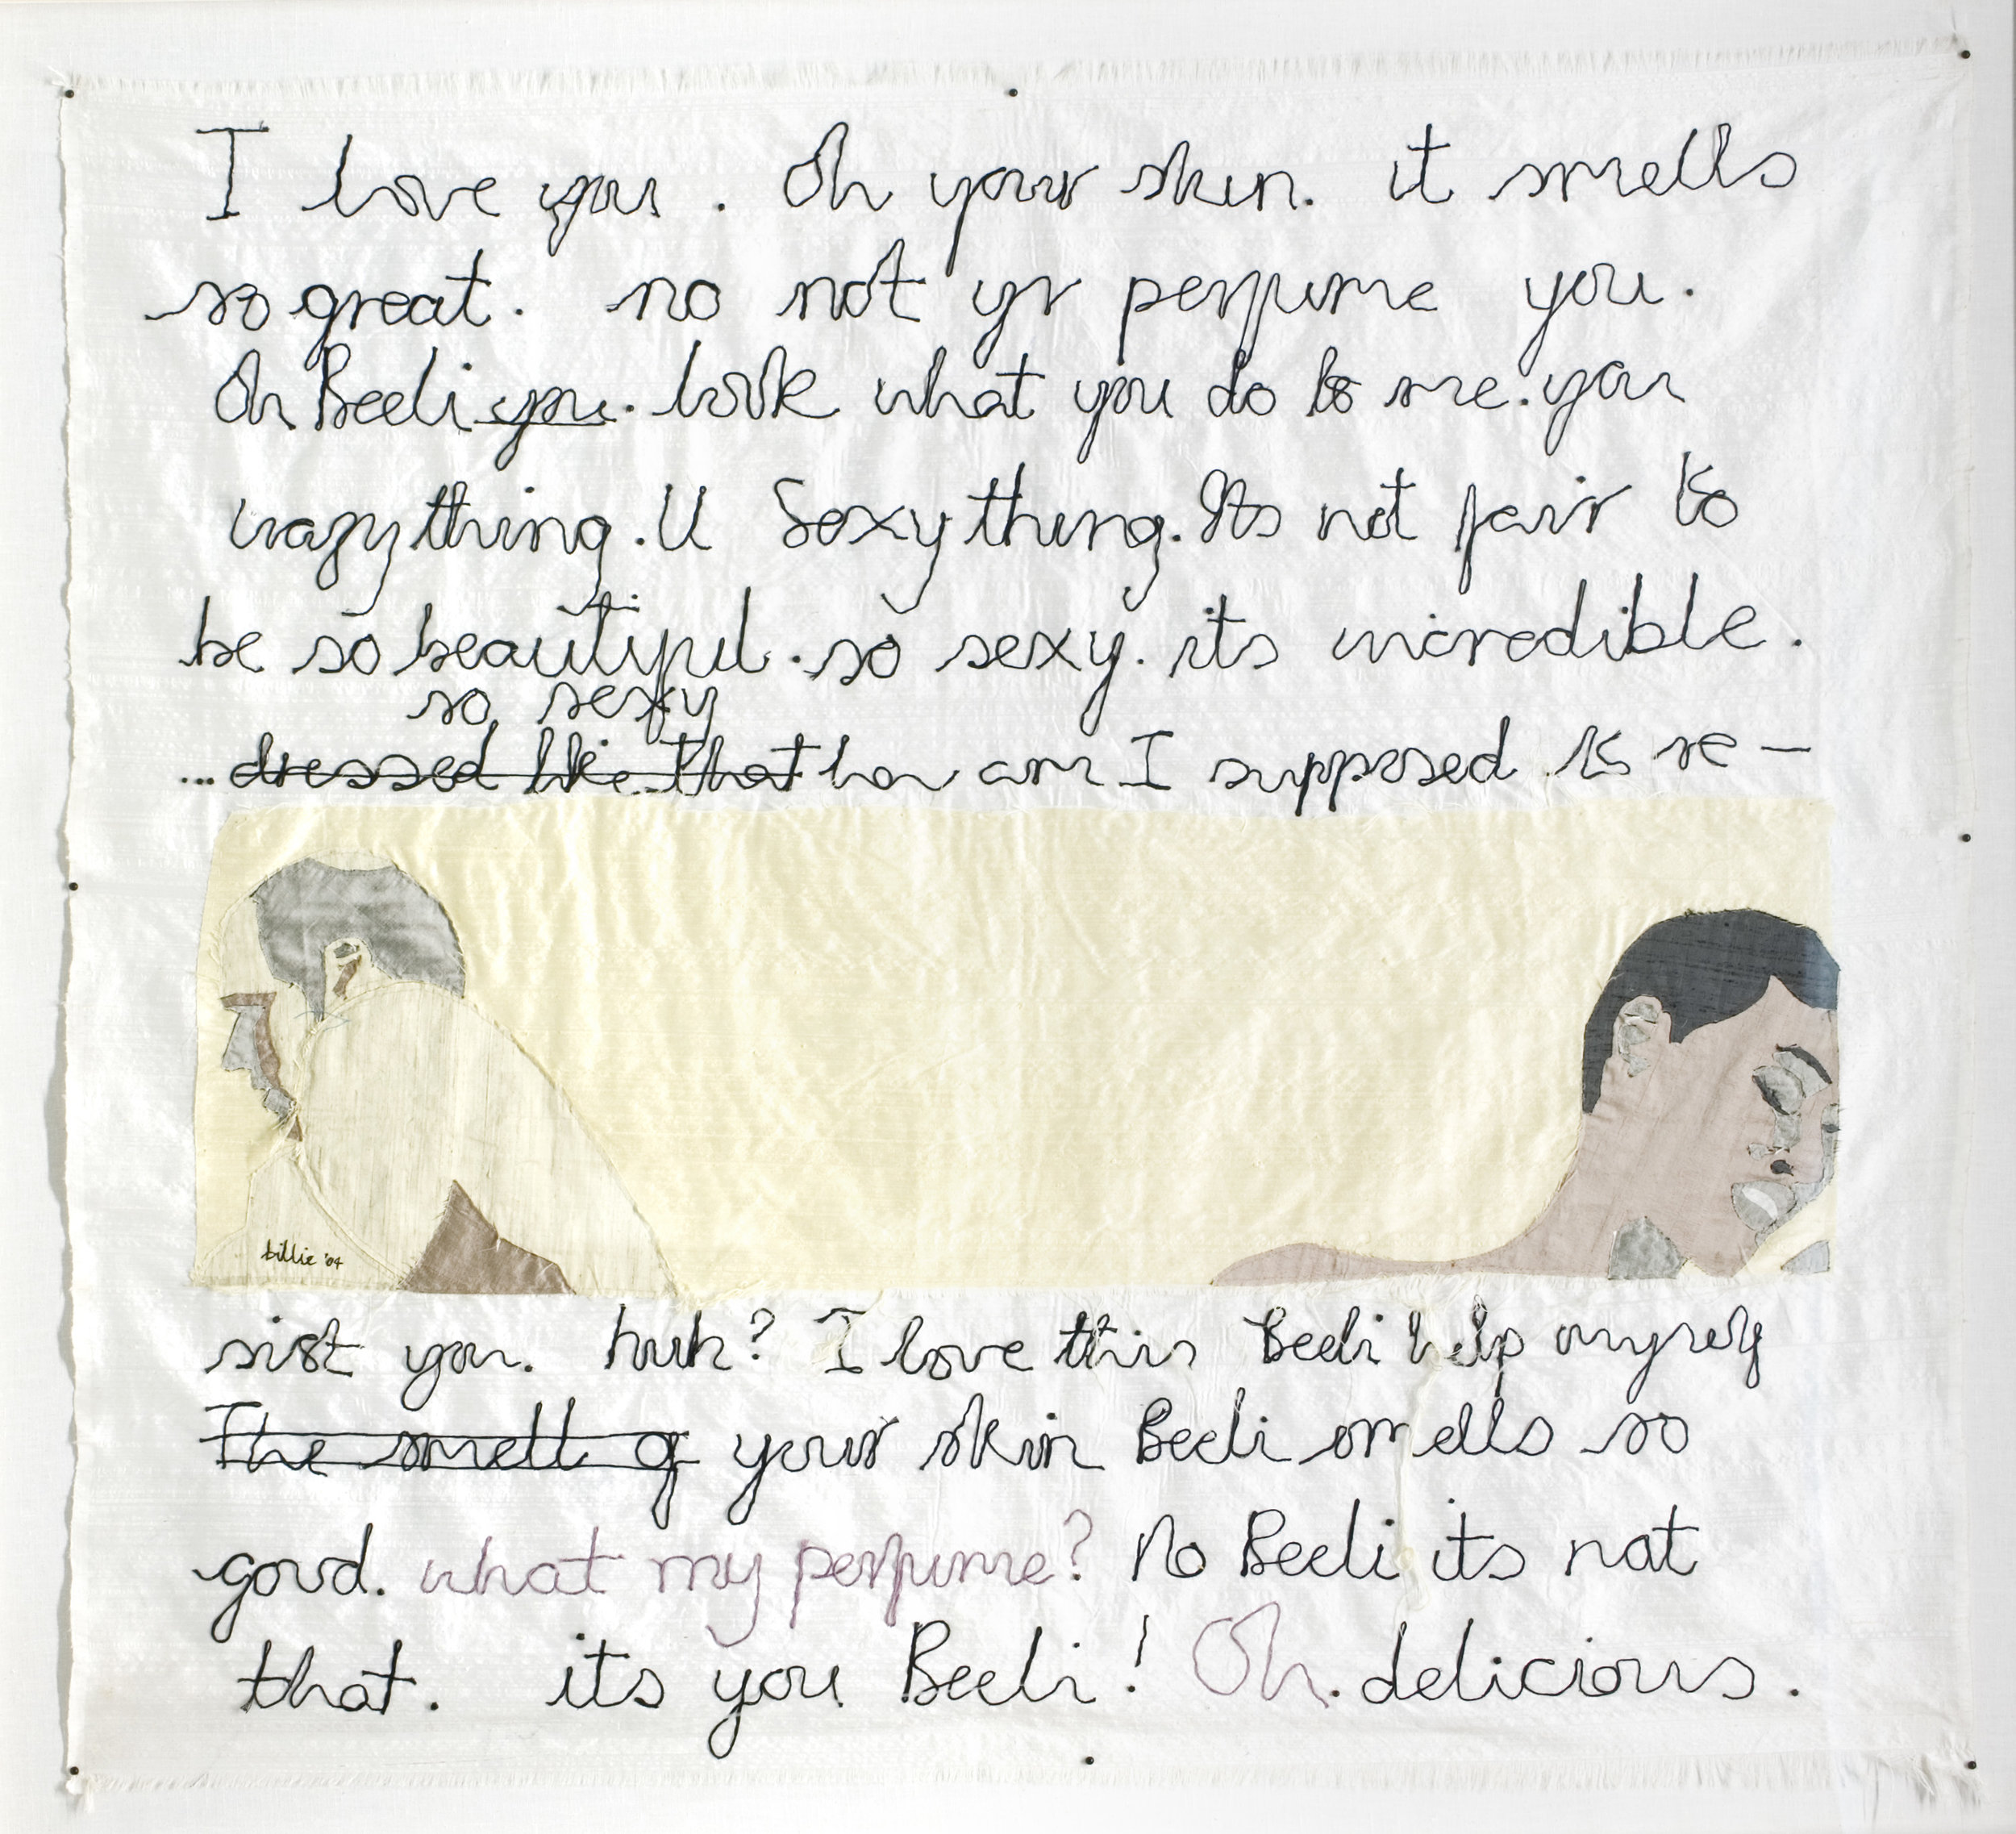 I love you. Oh your skin. it smells
so great. no not yr perfume you.
Oh Beeli you. look what you do to me. you
crazy thing. U Sexy thing. Its not fair to
be so beautiful. so sexy. its incredible.
so sexy
... dressed like that how am I supposed to re-
billie '04
sist you. huh? I love this Beeli help myself
The smell of your skin Beeli smells so
good. what my perfume? No Beeli its not
that. its you Beeli! Oh. delicious.